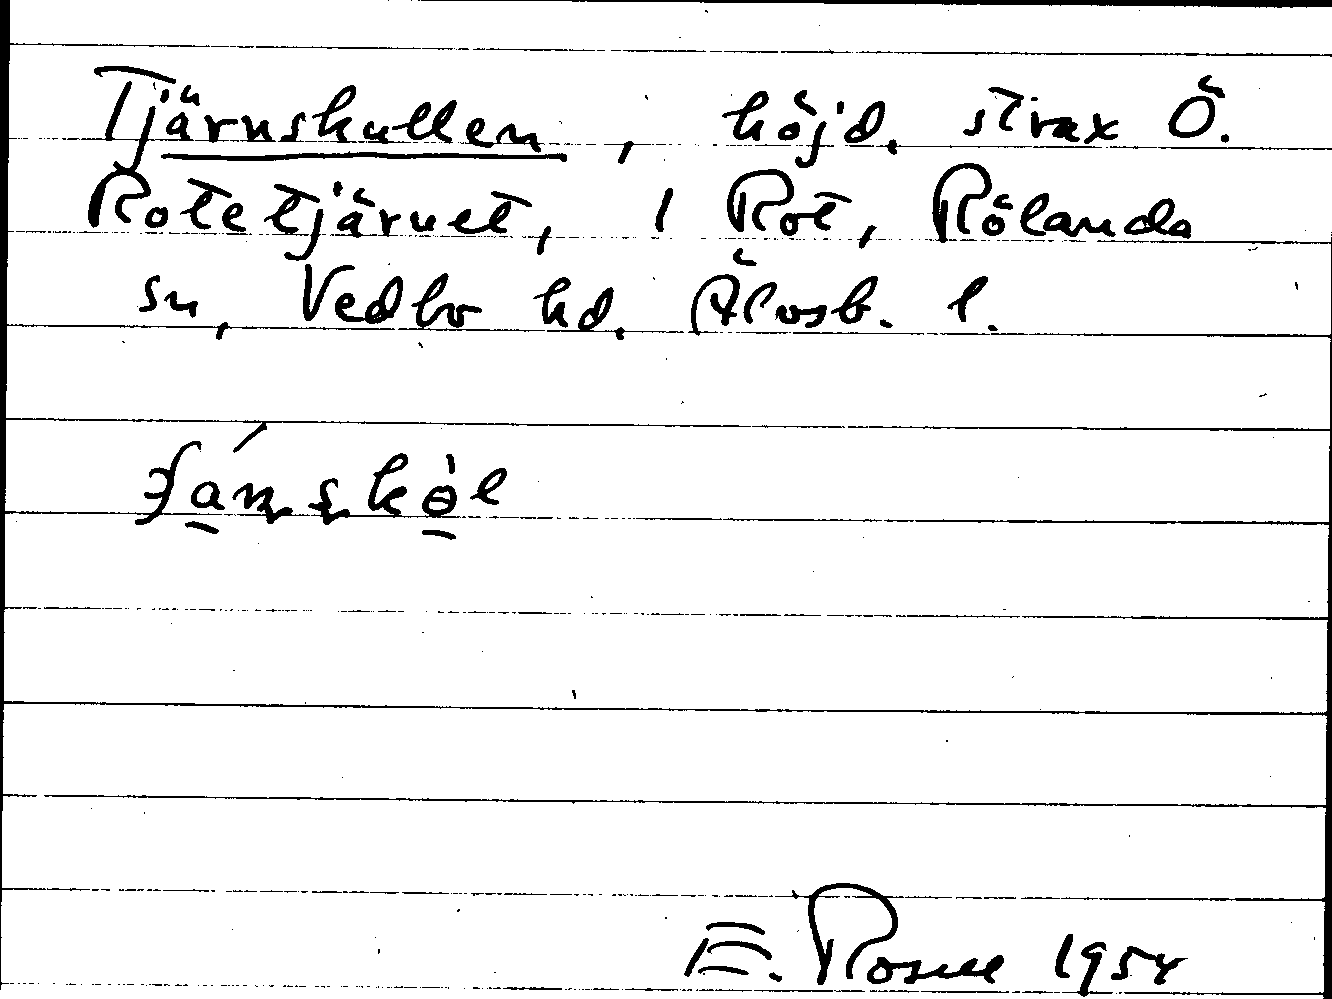 Tjärnskullen, höjd, strax Ö.
Rotetjärnet, i Rot, Rölanda
sn, Vedbo hd. Älvsb. l.
E. Rosell 1954